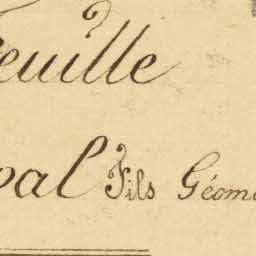 euille
al Fils Géom